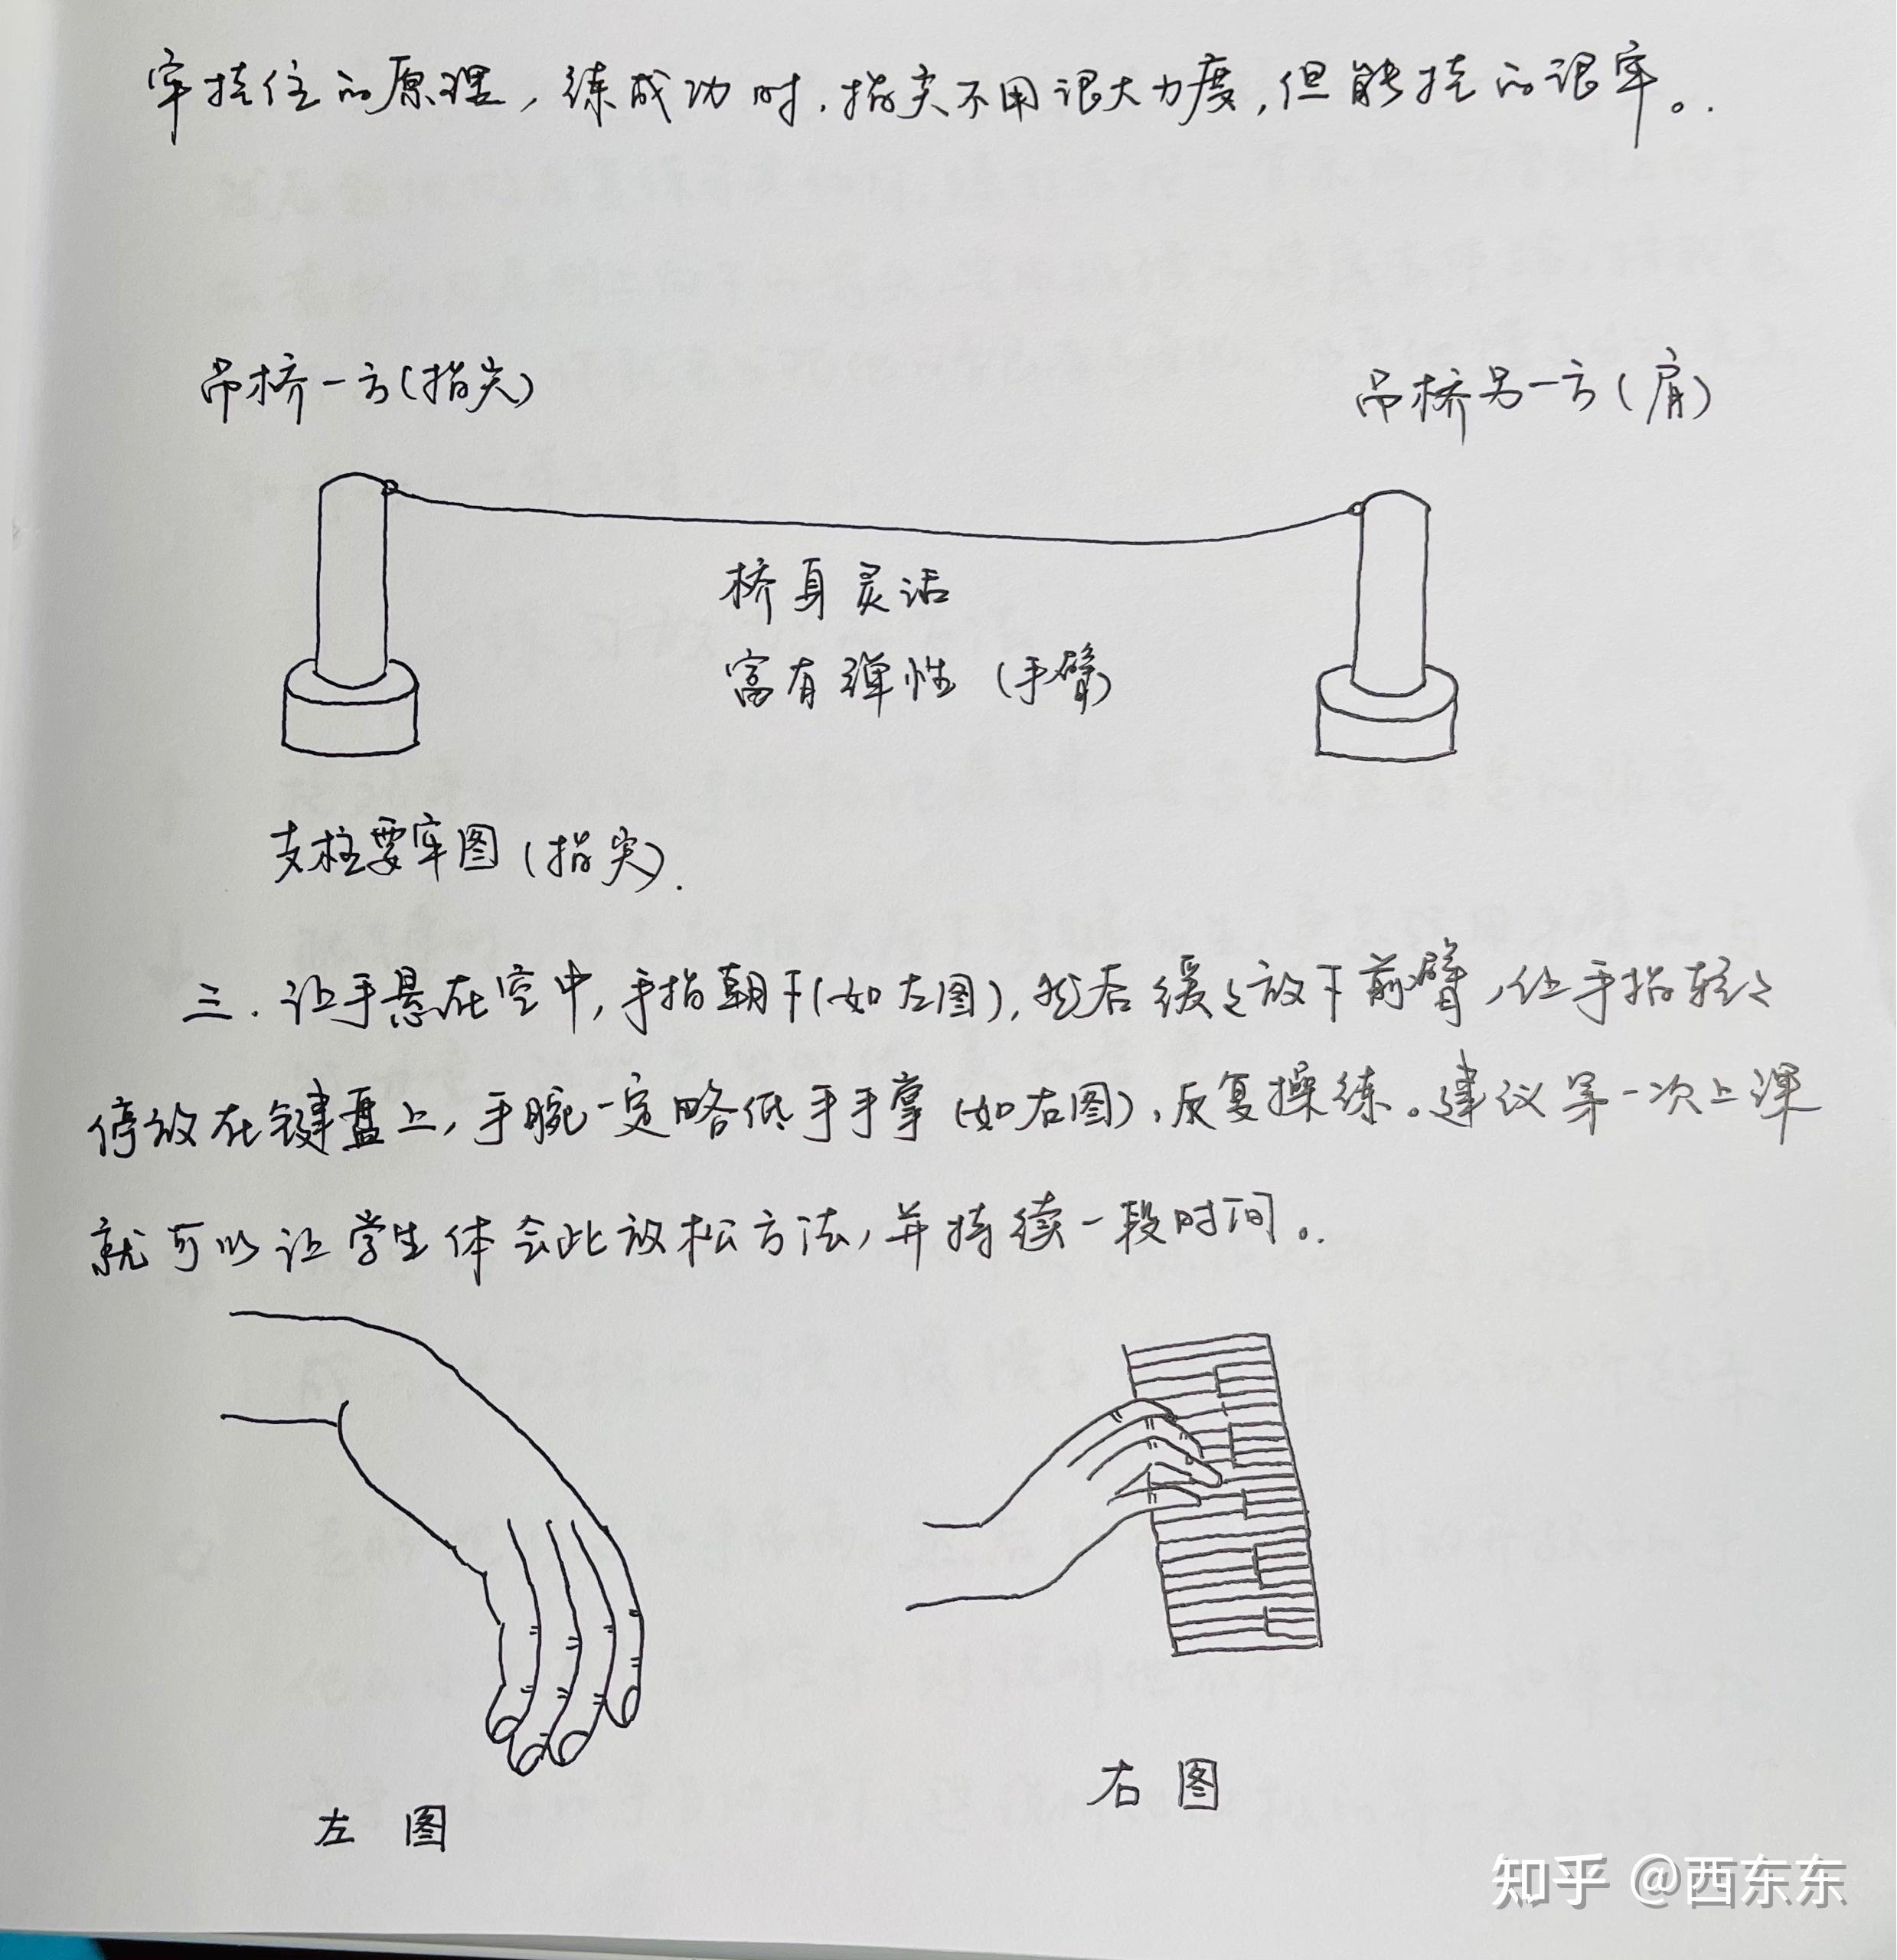 牢挂住的原理，练成功时，指尖不用很大力度，但能挂的很牢。.
吊桥一方(指尖)
吊桥另一方(肩)
桥身灵活
富有弹性(手臂)
支柱要牢固(指尖).
三.让手悬在空中，手指朝下(如左图)，然后缓々放下前臂，让手指轻々
停放在键盘上，手腕一定略低于手掌(如右图)，反复操练。建议第一次上课
就可以让学生体会此放松方法，并持续一段时间。.
左图
右图
知乎 @西东东